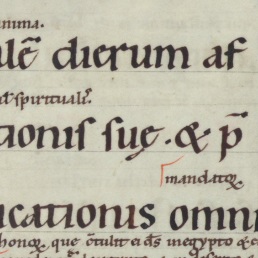 anima.
alē dierum af
al' spiritual'.
tionis suę. & p̄
mandatoꝝ
icationis omni
honoꝝ que ōtulit ei d̄s in egypto & e